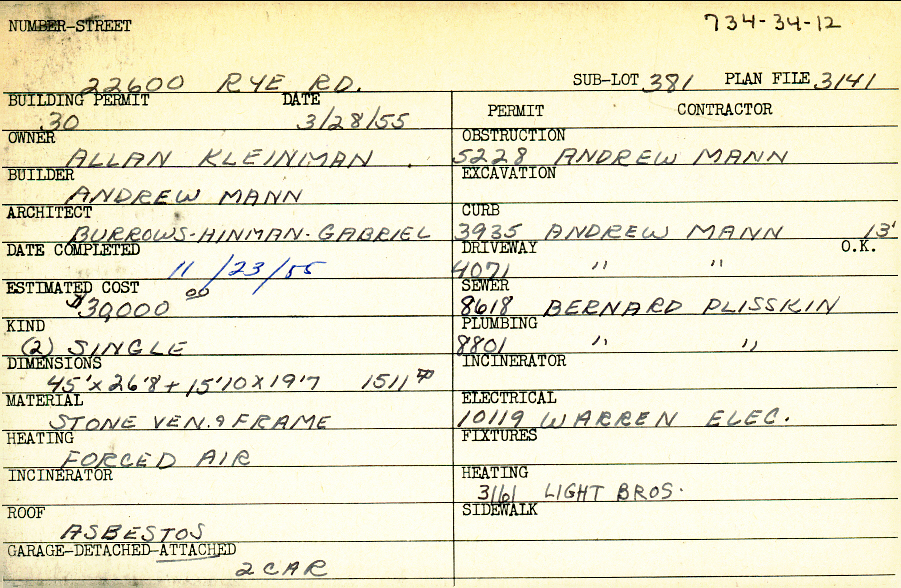 NUMBER-STREET 734-34-12
22600 RYE RD. SUB-LOT 381 PLAN FILE 3141
BUILDING PERMIT DATE
30 3/28/55
OWNER
ALLAN KLEINMAN .
BUILDER
ANDREW MANN
ARCHITECT
BURROWS-HINMAN-GABRIEL
DATE COMPLETED
11/23/55
ESTIMATED COST
$30,000 00
KIND
(2) SINGLE
DIMENSIONS
45'x26'8+15'10x19'7 1511
MATERIAL
STONE VEN. & FRAME
HEATING
FORCED AIR
INCINERATOR
ROOF
ASBESTOS
GARAGE-DETACHED-ATTACHED
2 CAR
PERMIT CONTRACTOR
OBSTRUCTION
5228 ANDREW MANN
EXCAVATION
CURB
3935 ANDREW MANN 13'
DRIVEWAY O.K.
4071 " "
SEWER
8618 BERNARD PLISSKIN
PLUMBING
8801 " "
INCINERATOR
ELECTRICAL
10119 WARREN ELEC.
FIXTURES
HEATING
3161 LIGHT BROS.
SIDEWALK